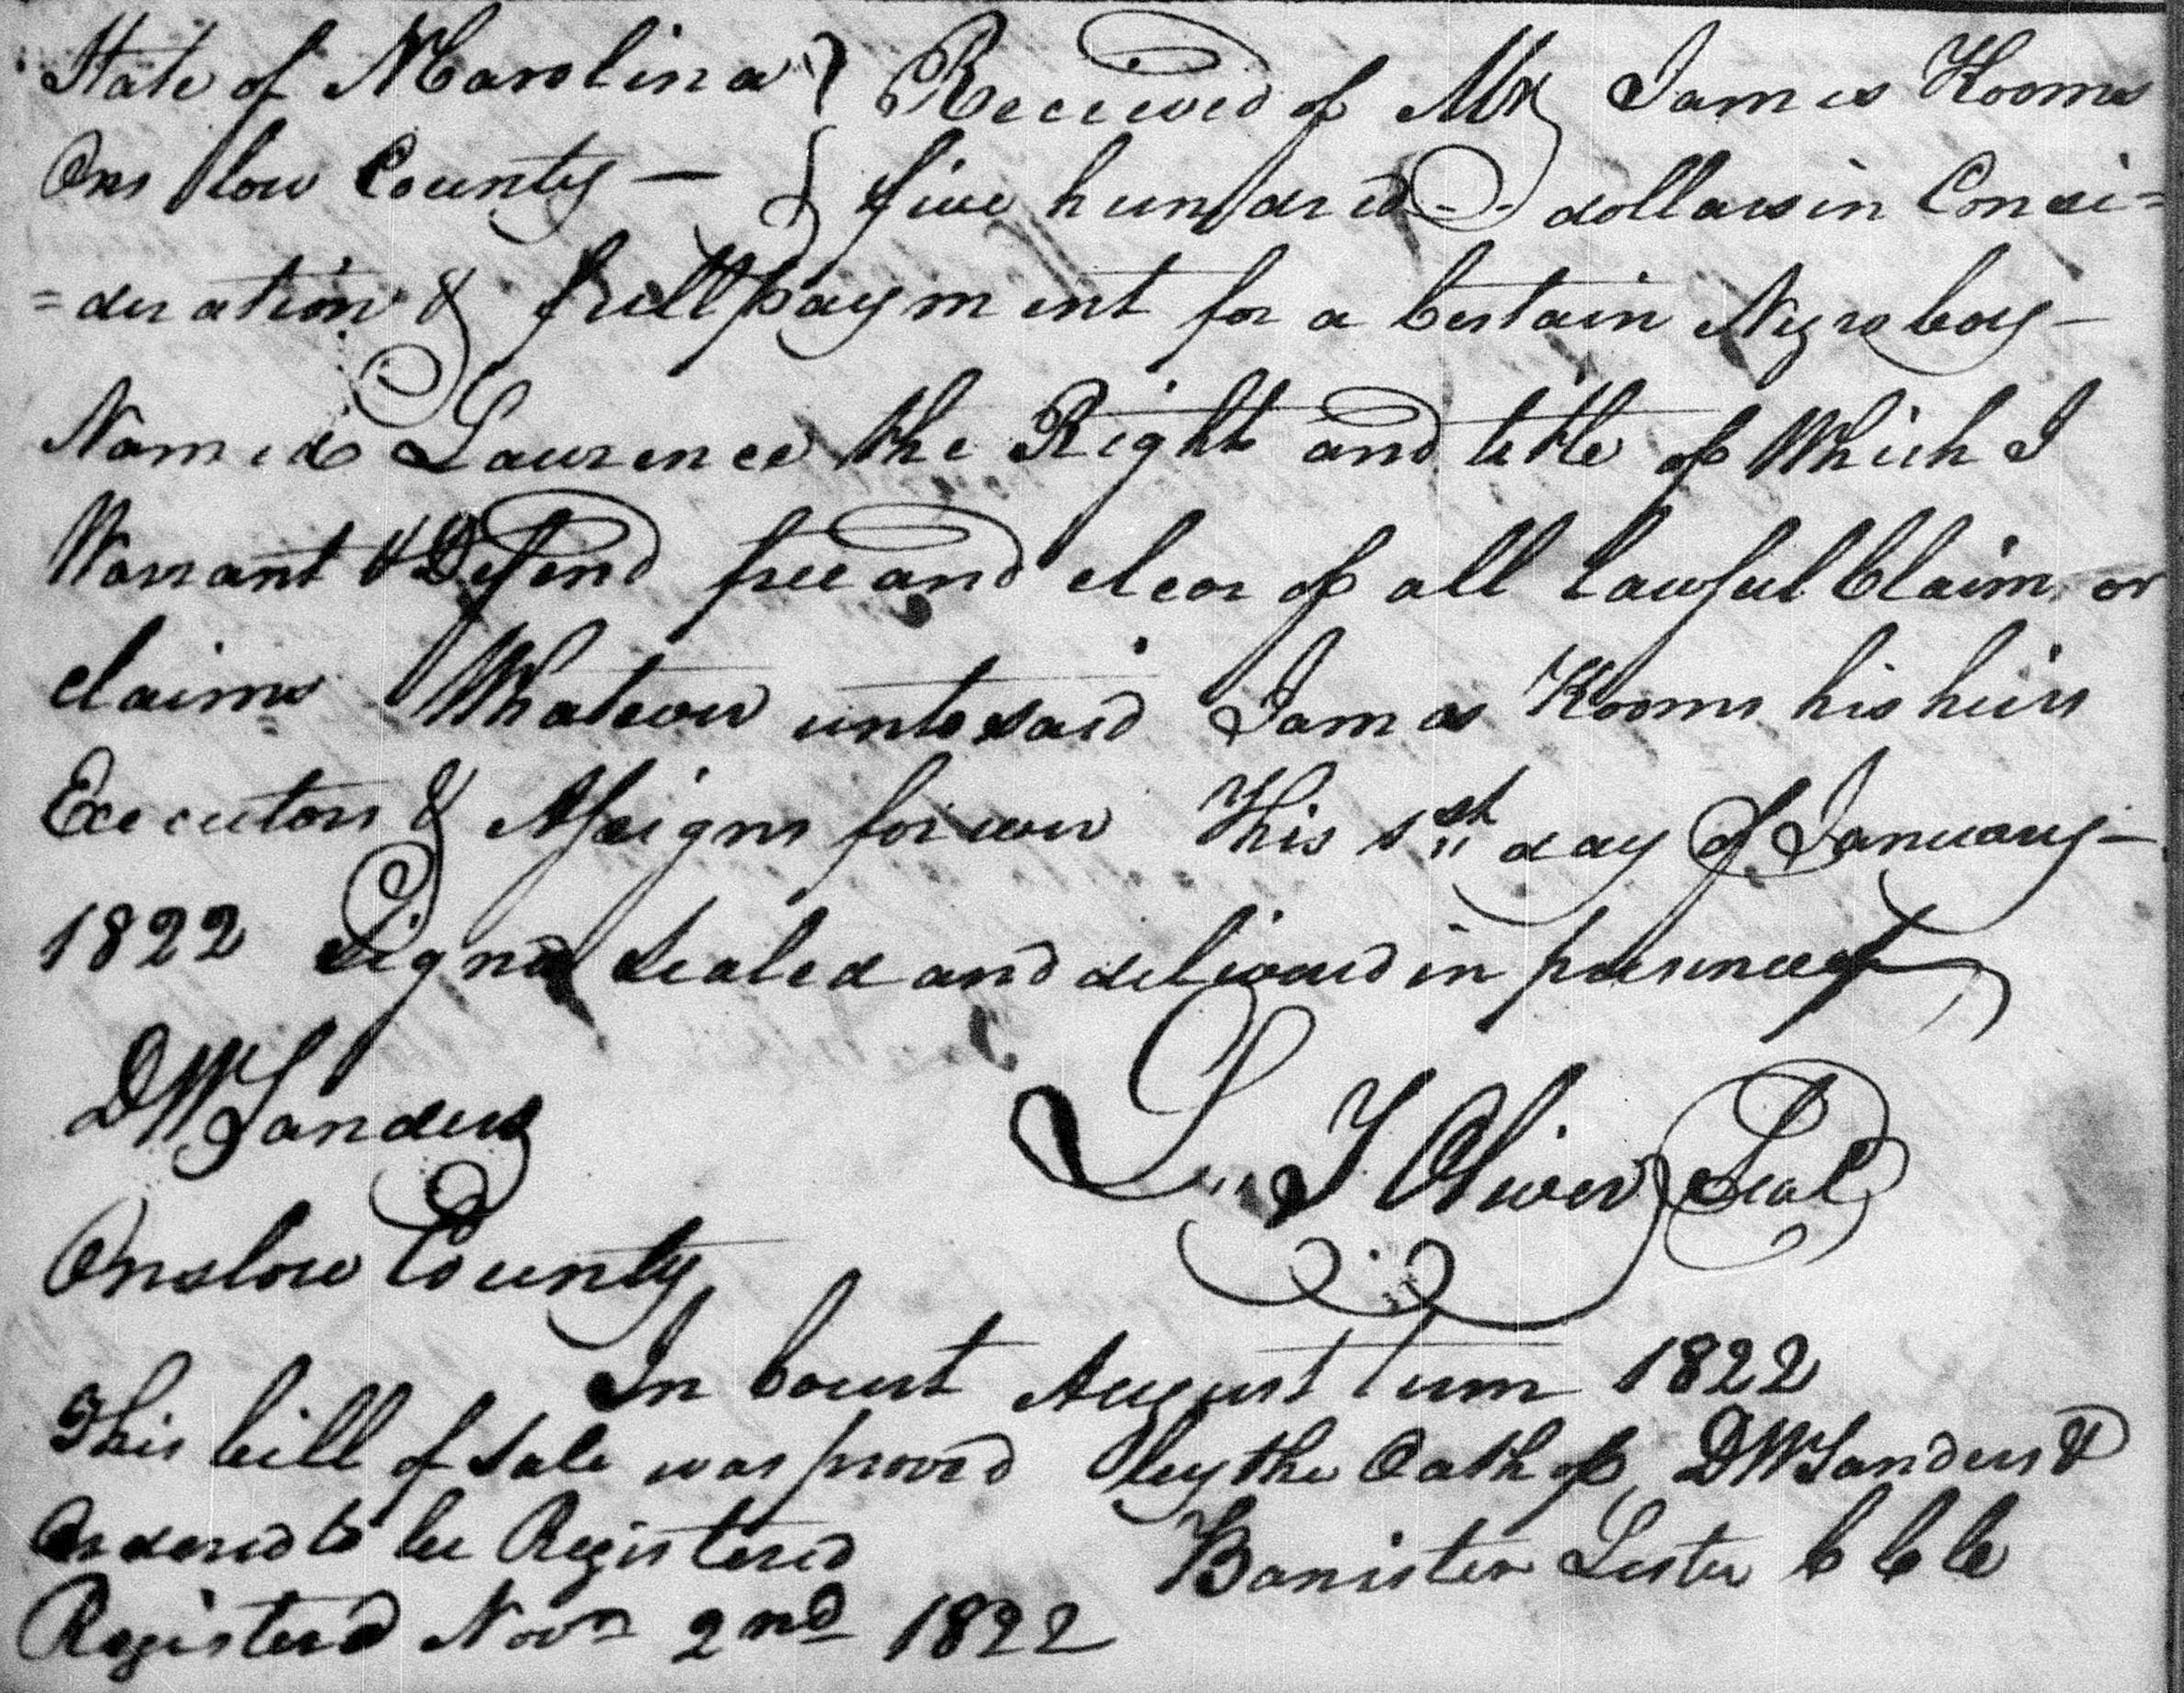 State of NCarolina } Received of Mr James Kooms
Onslow County — } five hundred -- dollars in Consi=
=deration & full payment for a Certain Negro boy —
Named Laurence the Right and title of Which I
Warrant & Defend free and clear of all lawful Claim or
claims Whatever unto said James Kooms his heirs
Executors & Assigns forever This 1st day of January —
1822 Signd Sealed and delivered in presence of
DW Sanders
L. J Oliver Seal
Onslow County
In Court August Term 1822
This bill of Sale was proved by the Oath of DW Sanders &
Ordered to be Registered
Banister Lester C C C
Registerd Novr 2nd 1822